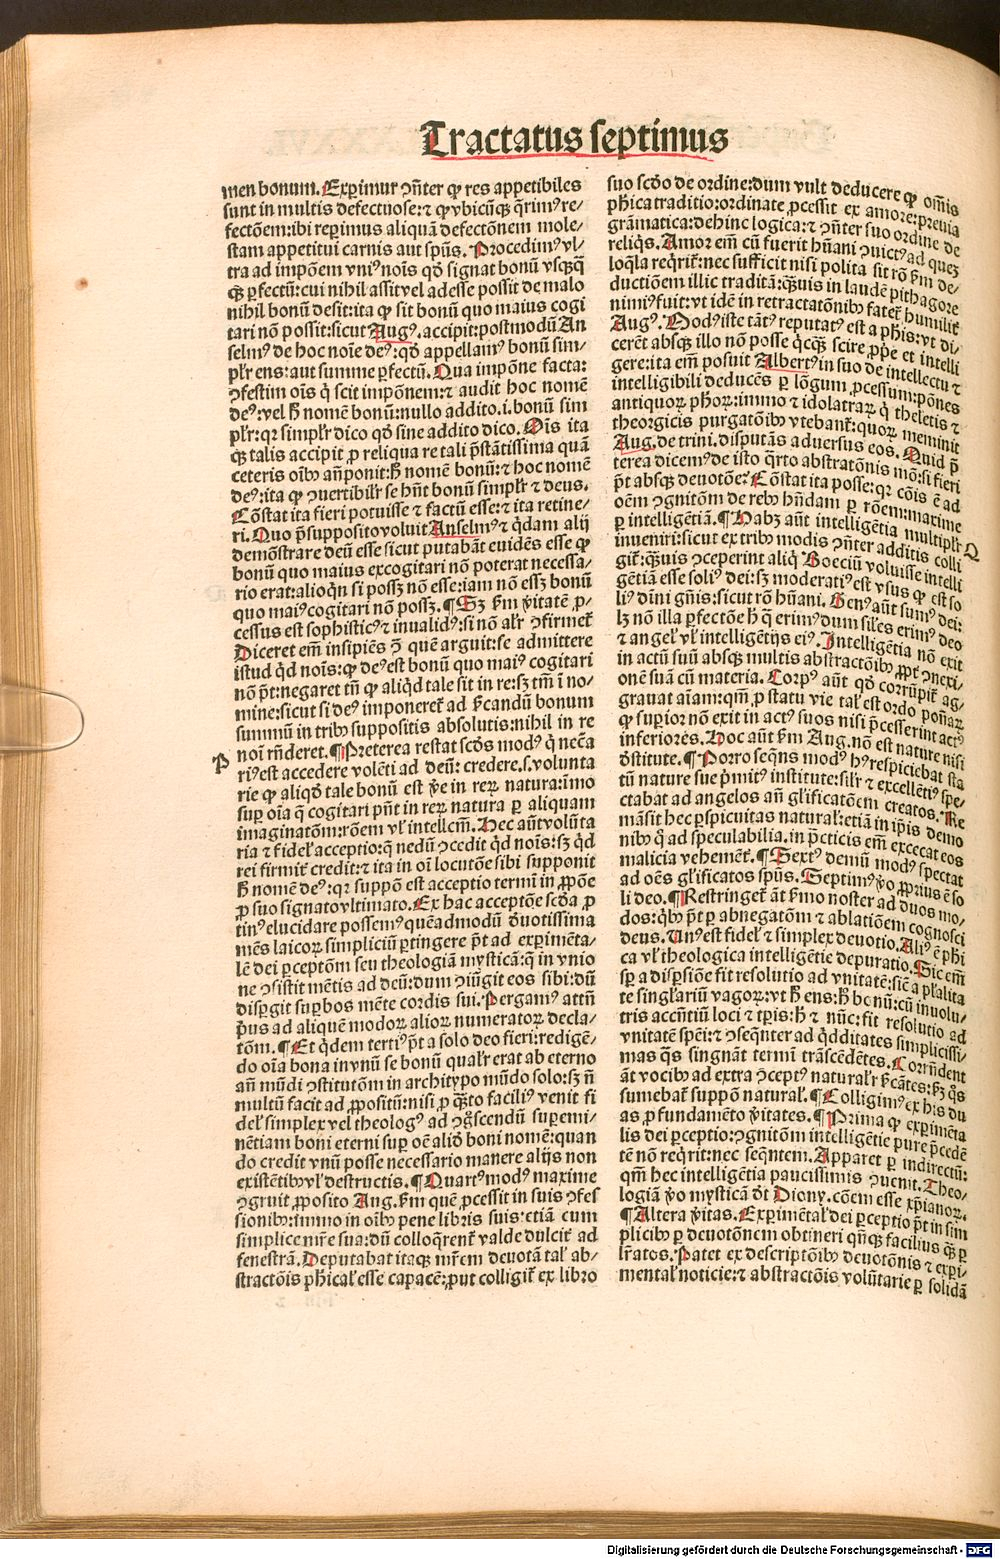 Tractatus septimus
men bonum. Exꝑimur ꝯñter ꝙ res appetibiles
sunt in multis defectuose: ⁊ ꝙ vbicũqꝫ q̃rimꝰ re/
fectõem: ibi reꝑimus aliquã defectõnem mole/
stam appetitui carnis aut spũs. Procedimꝰ vl/
tra ad impõem vniꝰ noĩs qđ signat bonũ vsqꝫq̃
qꝫ ꝑfectũ: cui nihil assit vel adesse possit de malo
nihil bonũ desit: ita ꝙ sit bonũ quo maius cogi
tari nõ possit: sicut Augꝰ. accipit: postmodũ An
selmꝰ de hoc noĩe deꝰ: qđ appellamꝰ bonũ sim/
plr̃ ens: aut summe ꝑfectũ. Qua impõne facta:
ꝯfestim oĩs q̇ scit impõnem: ⁊ audit hoc nomẽ
deꝰ: vel h̃ nomẽ bonũ: nullo addito. i. bonũ sim
plr̃: qꝛ simplr̃ dico qđ sine addito dico. Oĩs ita
qꝫ talis accipit ꝓ reliqua re tali p̃stãtissima quã
ceteris oĩbꝰ añponit: h̃ nomẽ bonũ: ⁊ hoc nomẽ
deꝰ: ita ꝙ ꝯvertibilr̃ se hñt bonũ simplr̃ ⁊ deus.
Cõstat ita fieri potuisse ⁊ factũ esse: ⁊ ita retine/
ri. Quo p̃supposito voluit Anselmꝰ ⁊ q̇dam alij
demõstrare deũ esse sicut putabãt euidẽs esse ꝙ
bonũ quo maius excogitari nõ poterat necessa/
rio erat: alioq̇n si possꝫ nõ esse: iam nõ essꝫ bonũ
quo maiꝰ cogitari nõ possꝫ. ¶ Sꝫ ẜm ṽitatẽ ꝓ/
cessus est sophisticꝰ ⁊ invalidꝰ: si nõ alr̃ ꝯfirmet̃
Diceret em̃ insipiẽs ꝯ̃ quẽ arguit: se admittere
istud q̇d noĩs: ꝙ deꝰ est bonũ quo maiꝰ cogitari
nõ p̃t: negaret tñ ꝙ aliq̇d tale sit in re: sꝫ tm̃ ĩ no/
mine: sicut si deꝰ imponeret̃ ad ẜcandũ bonum
summũ in tribꝰ suppositis absolutis: nihil in re
noĩ rñderet. ¶ Preterea restat scđs modꝰ q̇ necẽa
P
riꝰ est accedere volẽti ad deũ: credere. s. volunta
rie ꝙ aliqđ tale bonũ est ṽe in reꝝ natura: ĩmo
suꝑ oĩa q̃ cogitari pñt in reꝝ natura ꝑ aliquam
imaginatõm: rõem vl̃ intellcm̃. Hec aũt volũta
ria ⁊ fidel̃ acceptio: q̃ nedũ ꝯcedit q̇d noĩs: sꝫ q̇d
rei firmit̃ credit: ⁊ ita in oĩ locutõe sibi supponit
h̃ nomẽ deꝰ: qꝛ suppõ est acceptio termĩ in ꝓpõe
ꝓ suo signato vltimato. Ex hac acceptõe scđa ꝓ
tinꝰ elucidare possemꝰ quẽadmodũ đuotissima
mẽs laicoꝝ simpliciũ ꝑtingere p̃t ad exꝑimẽta/
lẽ dei ꝑceptõm seu theologiã mysticã: q̃ in vnio
ne ꝯsistit mẽtis ad deũ: dum ꝯiũgit eos sibi: dũ
disꝑgit suꝑbos mẽte cordis sui. Pergamꝰ attñ
p̃us ad aliquẽ modoꝝ alioꝝ numeratoꝝ decla/
tõm. ¶ Et q̇dem tertiꝰ p̃t a solo deo fieri: redigẽ/
do oĩa bona in vnũ se bonũ qualr̃ erat ab eterno
añ mũdi ꝯstitutõm in architypo mũdo solo: sꝫ ñ
multũ facit ad ꝓpositũ: nisi ꝓ q̃ʒto faciliꝰ venit fi
del̃ simplex vel theologꝰ ad ꝯg̃scendũ suꝑemi/
nẽtiam boni eterni suꝑ oẽ aliđ boni nomẽ: quan
do credit vnũ posse necessario manere alijs non
existẽtibꝰ vl̃ destructis. ¶ Quartꝰ modꝰ maxime
ꝯgruit ꝓposito Aug. ẜm quẽ ꝓcessit in suis ꝯfes
sionibꝰ: immo in oĩbꝰ pene libris suis: etiã cum
simplice mr̃e sua: dũ colloq̃rent̃ valde dulcit̃ ad
fenestrã. Deputabat itaqꝫ mr̃em deuotã tal̃ ab/
stractõis pħical̃ esse capacẽ: ꝓut colligit̃ ex libro
suo scđo de ordine: dum vult deducere ꝙ om̃is
pħica traditio: ordinate ꝓcessit ex amore: previa
grãmatica: dehinc logica: ⁊ ꝯñter suo ordine de
reliq̇s. Amor em̃ cũ fuerit hũani ꝯuictꝰ ad quez
loq̃la req̇rit̃: nec sufficit nisi polita sit rõ ẜm de/
ductiõem illic traditã: q̃ʒuis in laudẽ pithagore
nimiꝰ fuit: vt idẽ in retractatõnibꝰ fatet̃ humilit̃
Augꝰ. Modꝰ iste tãtꝰ reputatꝰ est a pħis: vt di/
cerẽt absqꝫ illo nõ posse q̇cqꝫ scire ꝓpe et intelli
gere: ita em̃ posuit Albertꝰ in suo de intellectu ⁊
intelligibili deducẽs ꝑ lõgum ꝓcessum: põnes
antiquoꝝ pħoꝝ: immo ⁊ idolatraꝝ q̇ theletis ⁊
theorgicis purgatõibꝰ vtebant̃: quoꝝ meminit
Aug. de trini. disputãs aduersus eos. Quid p̃
terea dicemꝰ de isto q̇rto abstratõnis mõ: si fieri
p̃t absqꝫ deuotõe? Cõstat ita posse: qꝛ cõis ẽ ad
oẽm ꝯgnitõm de rebꝰ hñdam ꝑ rõem: maxime
ꝑ intelligẽtiã. ¶ Habꝫ aũt intelligẽtia multiplr̃
Q
inueniri: sicut ex tribꝰ modis ꝯñter additis colli
git̃: q̃ʒuis ꝯceperint aliq̇ Boeciũ voluisse intelli
gẽtiã esse soliꝰ dei: sꝫ moderatiꝰ est vsus ꝙ est so
liꝰ diñi gñis: sicut rõ hũani. Genꝰ aũt sumꝰ dei:
lꝫ nõ illa ꝑfectõe h̃ q̃ erimꝰ dum sil̃es erimꝰ deo
⁊ angel̃ vl̃ intelligẽtijs eiꝰ. Intelligẽtia nõ exit
in actũ suũ absqꝫ multis abstractõibꝰ ꝓpt̃ ꝯnexi/
onẽ suã cũ materia. Corpꝰ aũt qđ corrũpit̃ ag/
grauat aĩam: qm̃ ꝓ statu vie tal̃ est ordo poñaꝝ
ꝙ suꝑior nõ exit in actꝰ suos nisi p̃cesserint actꝰ
inferiores. Hoc aũt ẜm Aug. nõ est nature nisi
đstitute. ¶ Porro seq̃ns modꝰ hꝰ respiciebat sta
tũ nature sue p̃mitꝰ institute: silr̃ ⁊ excellẽtiꝰ spe/
ctabat ad angelos añ gl̃ificatõem creatos. Re
mãsit hec ꝑspicuitas natural̃: etiã in ip̃is demo
nibꝰ q̃ ad speculabilia. in p̃cticis em̃ excecat eos
malicia vehemẽt̃. ¶ Sextꝰ demũ modꝰ spectat
ad oẽs gl̃ificatos spũs. Septimꝰ ṽo ꝓpriꝰ ẽ so
li deo. ¶ Restringet̃ ãt ẜmo noster ad duos mo/
dos: q̇bꝰ p̃t ꝑ abnegatõm ⁊ ablatiõem cognosci
deus. Vnꝰ est fidel̃ ⁊ simplex deuotio. Aliꝰ ẽ pħi
ca vl̃ theologica intelligẽtie depuratio. Sic em̃
sꝑ a disꝑsiõe fit resolutio ad vnitatẽ: sic̃ a pl̃alita
te singl̃ariũ vagoꝝ: vt h̃ ens: h̃ bonũ: cũ inuolu/
tris accñtiũ loci ⁊ tꝑis: h̃ ⁊ nũc: fit resolutio ad
vnitatẽ spẽi: ⁊ ꝯseq̃nter ad q̇dditates simplicissi/
mas q̃s singnãt termĩ trãscẽdẽtes. Corrñdent
ãt vocibꝰ ad extra ꝯceptꝰ natural̃r ẜcãtes: ẜꝫ q̃s
sumebat̃ suppõ natural̃. ¶ Colligimꝰ ex his du
as ꝓ fundamẽto ṽitates. ¶ Prima ꝙ exꝑimẽta
lis dei ꝑceptio: ꝯgnitõm intelligẽtie pure p̃cedẽ
tẽ nõ req̇rit: nec seq̃ntem. Apparet ꝑ indirectũ:
qm̃ hec intelligẽtia paucissimis ꝯuenit. Theo/
logiã ṽo mysticã đt Diony. cõem esse xp̃ianoꝝ.
¶ Altera ṽitas. Exꝑimẽtal̃ dei ꝑceptio p̃t in sim
plicibꝰ ꝑ deuotõnem obtineri qñqꝫ facilius qꝫ ꝑ
lr̃atos. Patet ex descriptõibꝰ deuotõnis ⁊ exꝑi/
mental̃ noticie: ⁊ abstractõis volũtarie ꝑ solidã
Digitalisierung gefördert durch die Deutsche Forschungsgemeinschaft - DFG